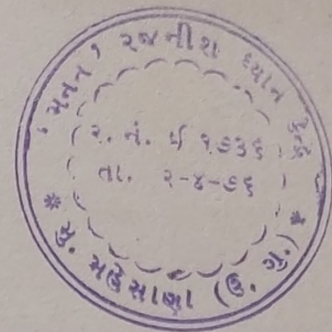 'મનન' રજનીશ ધ્યાન કેન્દ્ર
ર. નં. ઈ ૧૭૩૬
તા. ૨-૪-૭૬
* મુ. મહેસાણા (ઉ. ગુ.) *